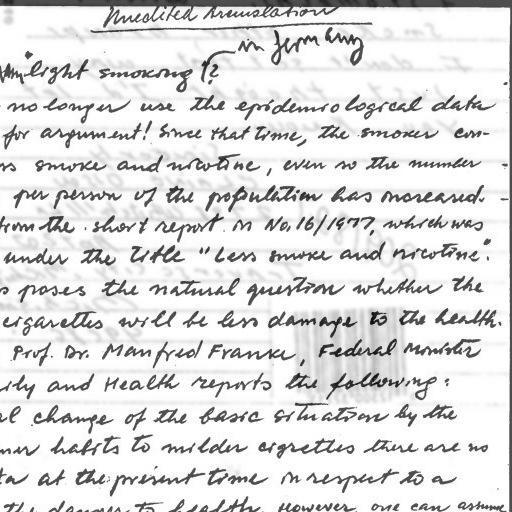 Unedited Translation
in Germany
"light smoking"?
no longer use the epidemiological data
for argument! Since that time, the smoker con-
smoke and nicotine, even so the number
per person of the population has increased.
from the short report in No. 16/1977, which was
under the title "Less smoke and nicotine".
poses the natural question whether the
cigarettes will be less damage to the health.
Prof. Dr. Manfred Franke, Federal Minister
ily and Health reports the following:
al change of the basic situation by the
mer habits to milder cigrettes there are no
ta at the present time in respect to a
the danger to health. However, one can assume